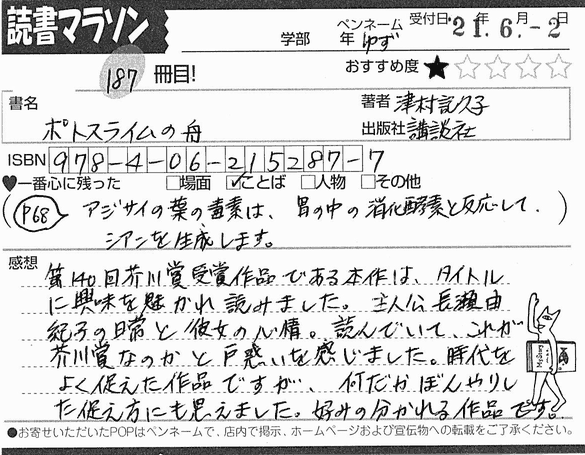 読書マラソン
学部 年 ペンネーム ゆず 受付日 '21年6月-2日
187冊目! おすすめ度 ★☆☆☆☆
書名 著者 津村記久子
ポトスライムの舟 出版社 講談社
ISBN 978-4-06-215287-7
♥一番心に残った □場面 ☑ことば □人物 □その他
(P68 アジサイの葉の毒素は、胃の中の消化酵素と反応して、
シアンを生成します。)
感想
第140回芥川賞受賞作品である本作は、タイトル
に興味を魅かれ読みました。主人公長瀬由
紀子の日常と彼女の心情。読んでいて、これが
芥川賞なのかと戸惑いを感じました。時代を
よく捉えた作品ですが、何だかぼんやりし
た捉え方にも思えました。好みの分かれる作品です。
●お寄せいただいたPOPはペンネームで、店内で掲示、ホームページおよび宣伝物への転載をご了承ください。